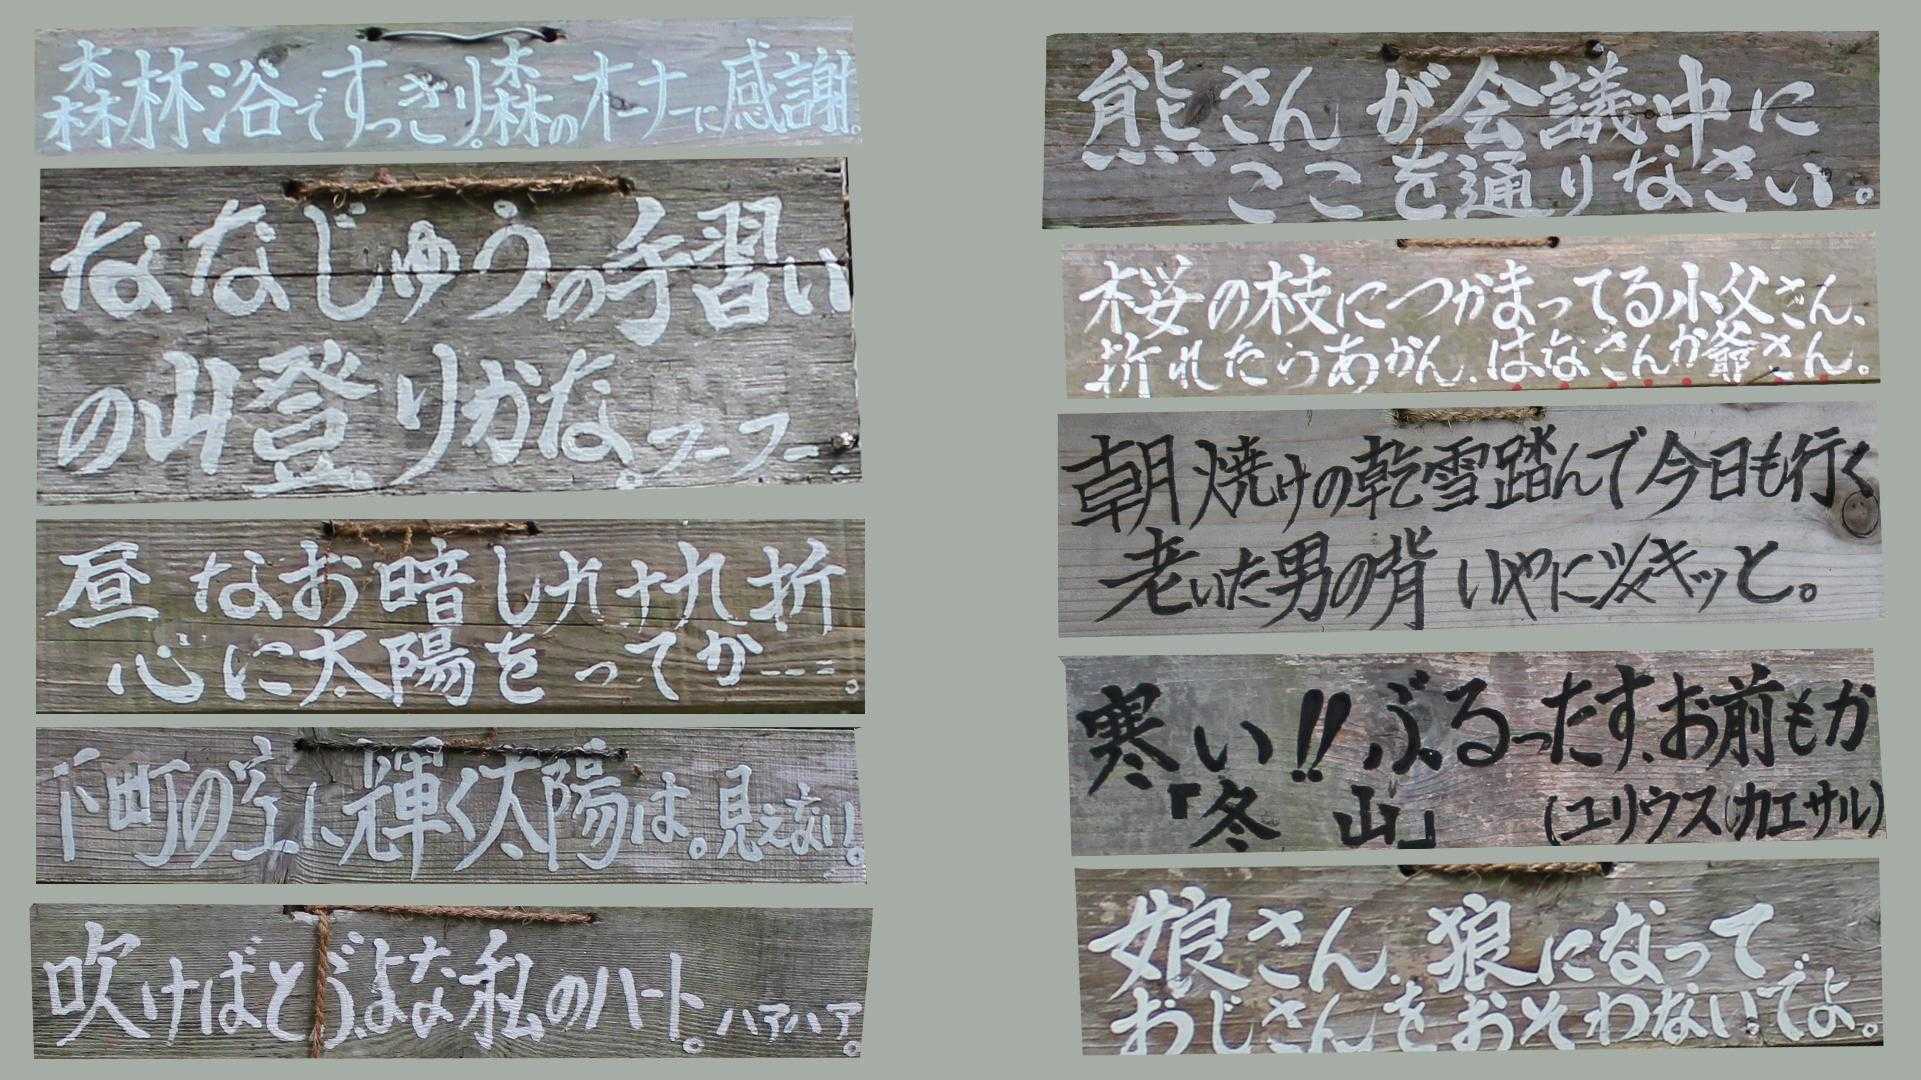 森林浴ですっきり。森のオーナーに感謝。
ななじゅうの手習い
の山登りかな。フーフー…
昼なお暗し九十九折
心に太陽をってか……。
下町の空に輝く太陽は。見えない。
吹けばとぶよな私のハート。ハアハア。
熊さんが会議中に
ここを通りなさい。
桜の枝につかまってる小父さん、
折れたらあかん。はなさんか爺さん。
朝焼けの乾雪踏んで今日も行く
老いた男の背 いやにシャキッと。
寒い!!ぶるったす、お前もか
「冬 山」 (ユリウス・カエサル)
娘さん、狼になって
おじさんをおそわないでよ。